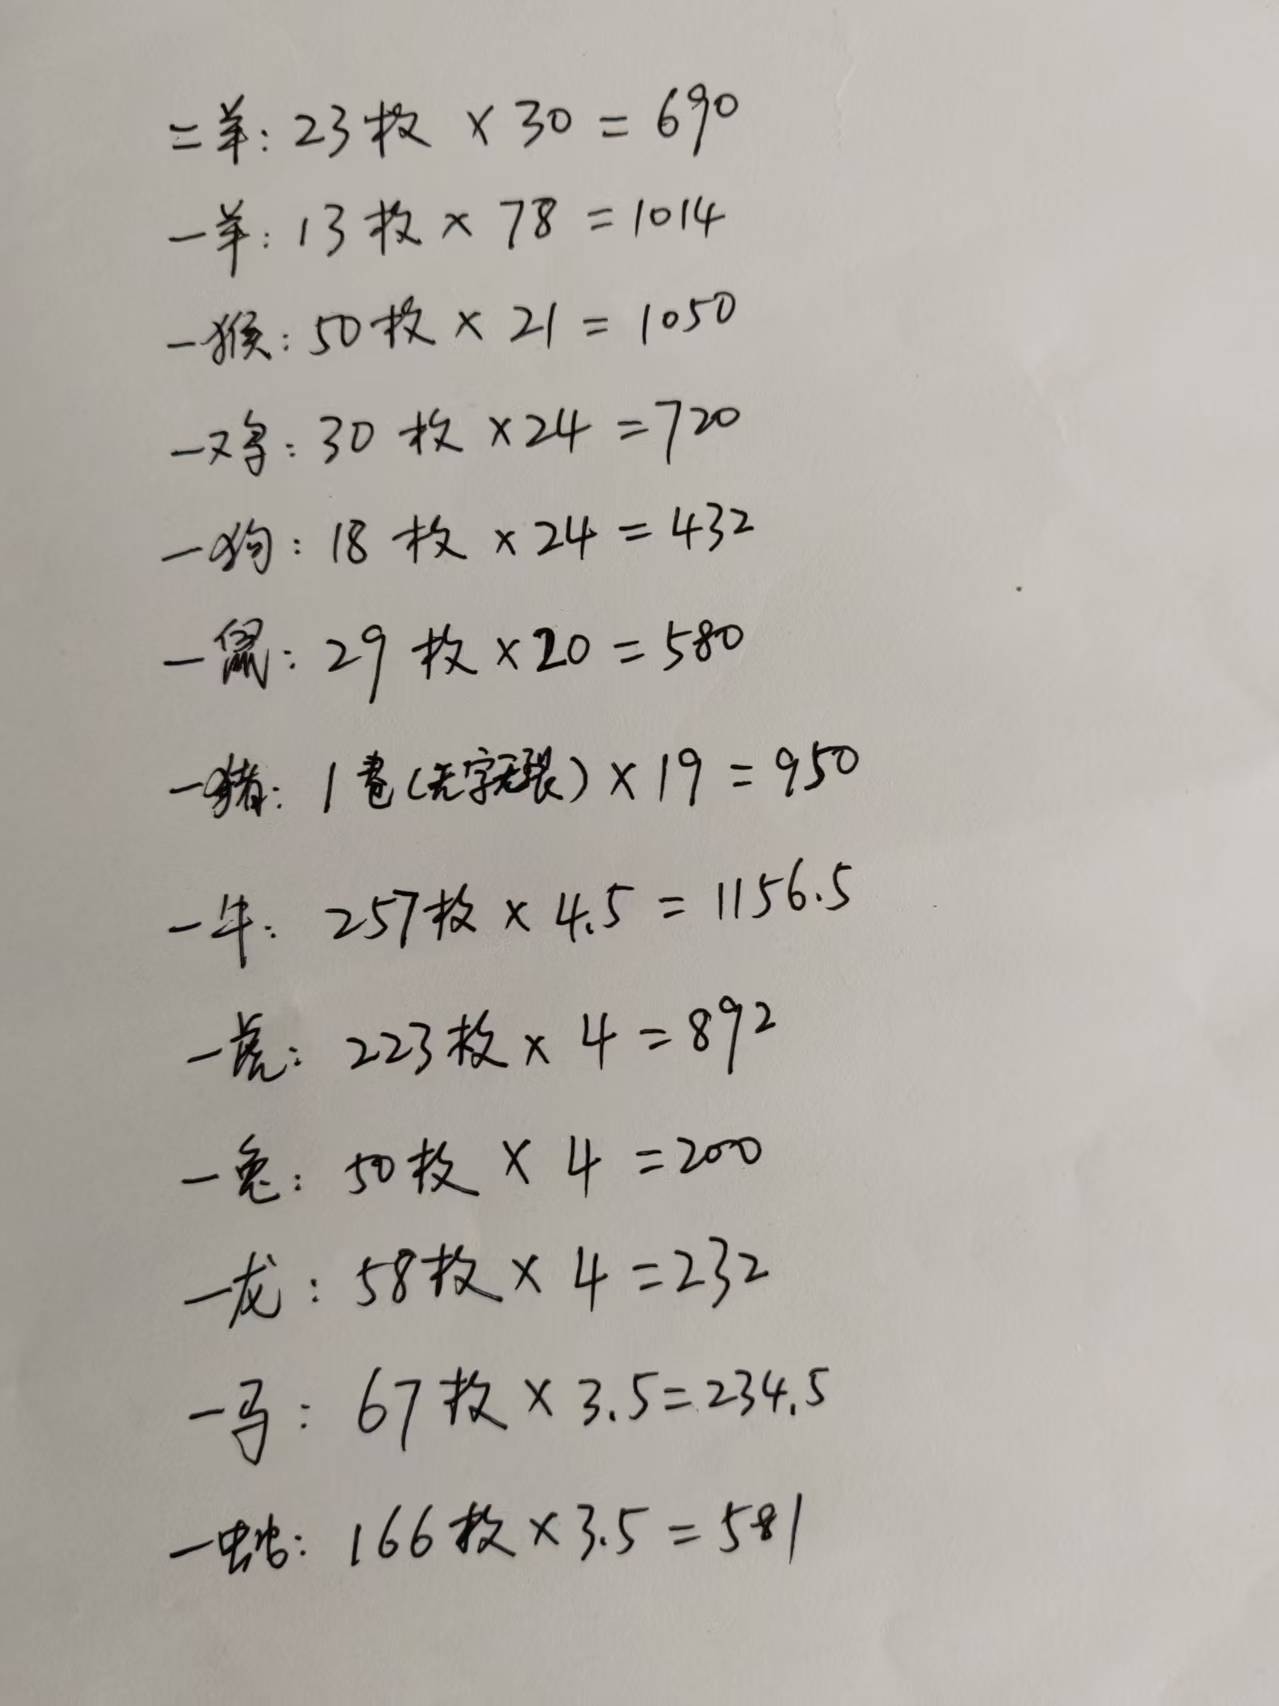 二羊：23枚 × 30 = 690
一羊：13枚 × 78 = 1014
一猴：50枚 × 21 = 1050
一鸡：30枚 × 24 = 720
一狗：18枚 × 24 = 432
一鼠：29枚 × 20 = 580
一猪：1卷（无字无裂）× 19 = 950
一牛：257枚 × 4.5 = 1156.5
一虎：223枚 × 4 = 892
一兔：50枚 × 4 = 200
一龙：58枚 × 4 = 232
一马：67枚 × 3.5 = 234.5
一蛇：166枚 × 3.5 = 581